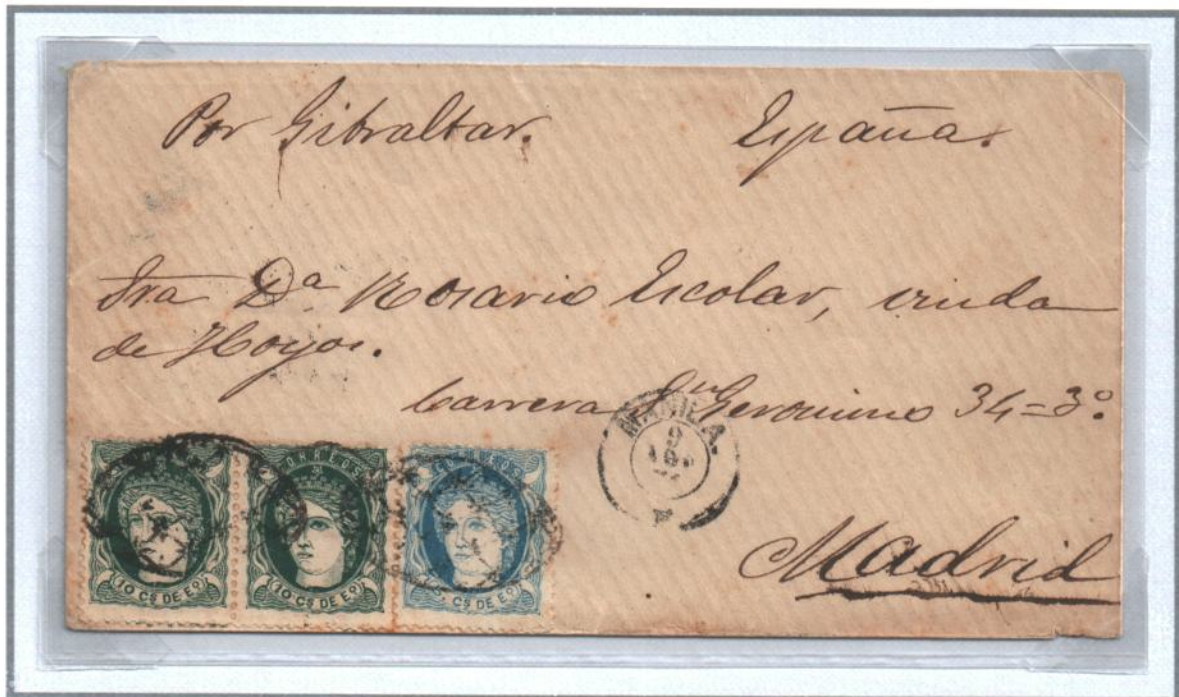 Por Gibraltar. España.
Sra Dª Rosario Escolar, viuda
de Hoyos.
Carrera Sn Geronimo 34=3º.
MANILA.
9
Madrid
CORREOS
10 Cs DE Eo
10 Cs DE Eo
Cs DE Eo